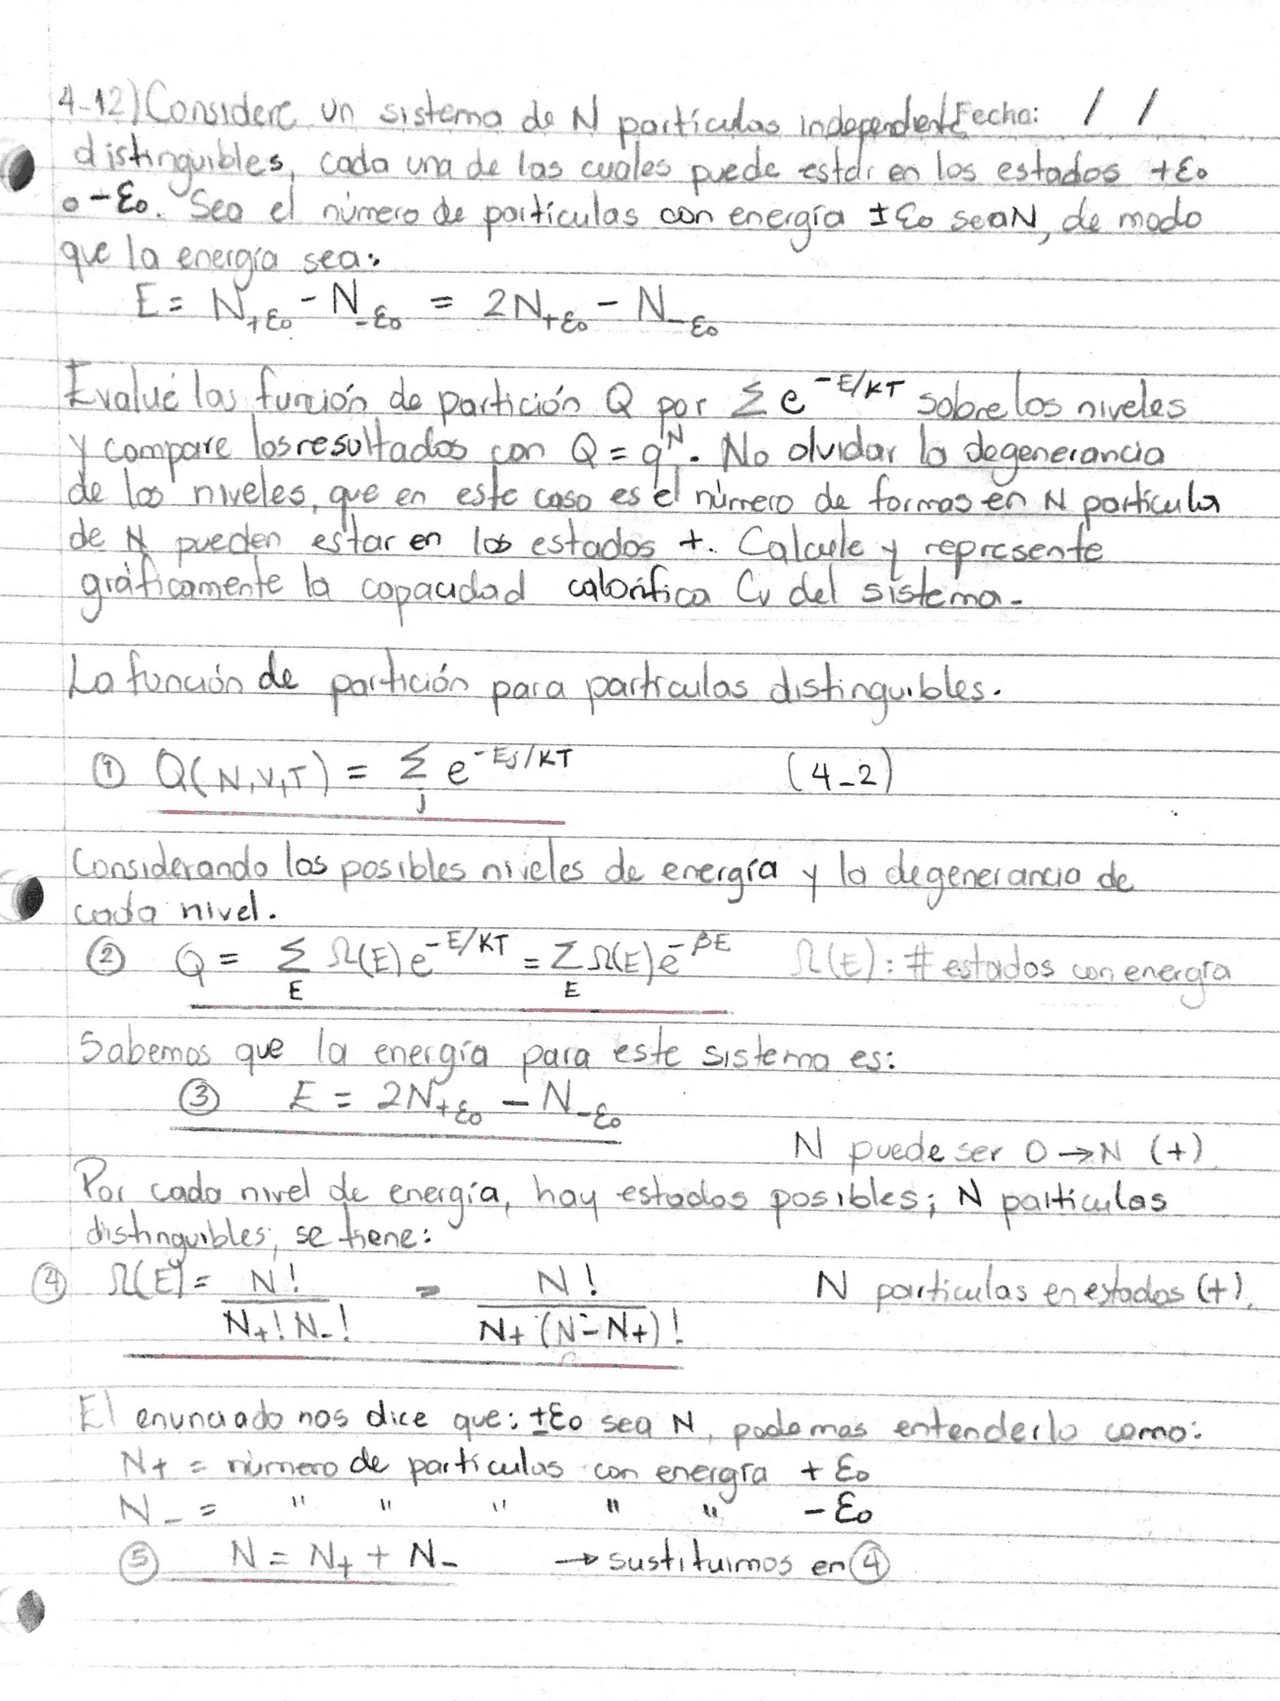 4-12) Considere un sistema de N partículas independent Fecha: / /
distinguibles, cada una de las cuales puede estar en los estados +ε₀
o -ε₀. Sea el número de partículas con energía ±ε₀ sea N, de modo
que la energía sea:
E = N₊ε₀ - N₋ε₀ = 2N₊ε₀ - N₋ε₀
Evalué las función de partición Q por Σ e^(-E/KT) sobre los niveles
y compare los resultados con Q = q^N. No olvidar la degenerancia
de los niveles, que en este caso es el número de formas en N partícula
de N pueden estar en los estados +. Calcule y represente
gráficamente la capacidad calorífica Cv del sistema.
La función de partición para partículas distinguibles.
① Q(N,V,T) = Σ_j e^(-Ej/KT) (4-2)
Considerando los posibles niveles de energía y la degenerancia de
cada nivel.
② Q = Σ_E Ω(E) e^(-E/KT) = Σ_E Ω(E) e^(-βE) Ω(E): # estados con energía
Sabemos que la energía para este sistema es:
③ E = 2N₊ε₀ - N₋ε₀
N puede ser 0 → N (+)
Por cada nivel de energía, hay estados posibles; N partículas
distinguibles, se tiene:
④ Ω(E) = N! / N₊! N₋! = N! / N₊ (N - N₊)! N partículas en estados (+).
El enunciado nos dice que: ±ε₀ sea N, podemos entenderlo como:
N₊ = número de partículas con energía + ε₀
N₋ = " " " " " - ε₀
⑤ N = N₊ + N₋ → sustituimos en ④